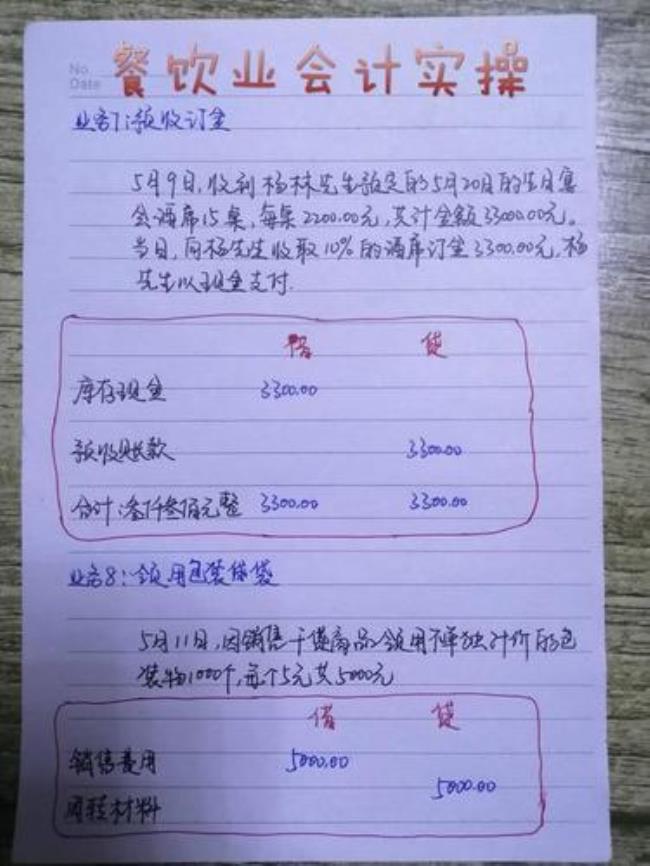 No.
Date
餐饮业会计实操
业务7:预收订金
5月9日,收到杨林先生预定的5月20日的生日宴
会酒席15桌,每桌2200.00元,共计金额33000.00元。
当日,向杨先生收取10%的酒席订金3300.00元,杨
先生以现金支付.
借 贷
库存现金 3300.00
预收账款 3300.00
合计:叁仟叁佰元整 3300.00 3300.00
业务8:领用包装袋
5月11日,因销售干货商品领用不单独计价的包
装物1000个,每个5元共5000元
借 贷
销售费用 5000.00
周转材料 5000.00